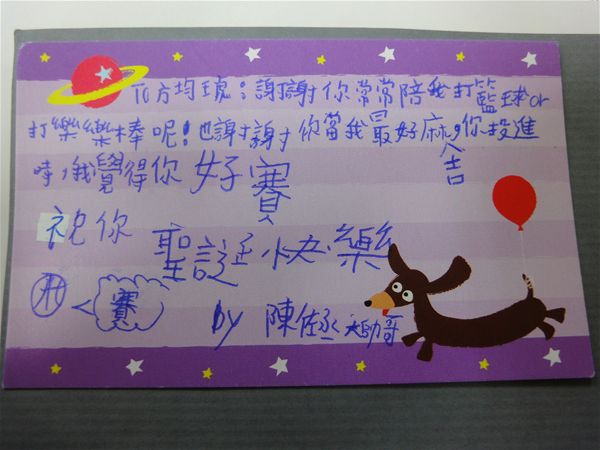 To方均琥：謝謝你常常陪我打籃球or
打樂樂棒呢！也謝謝你當我最好麻吉，你投進
時，我覺得你好賽
祝你
聖誕快樂
賽
by 陳佐丞大帥哥